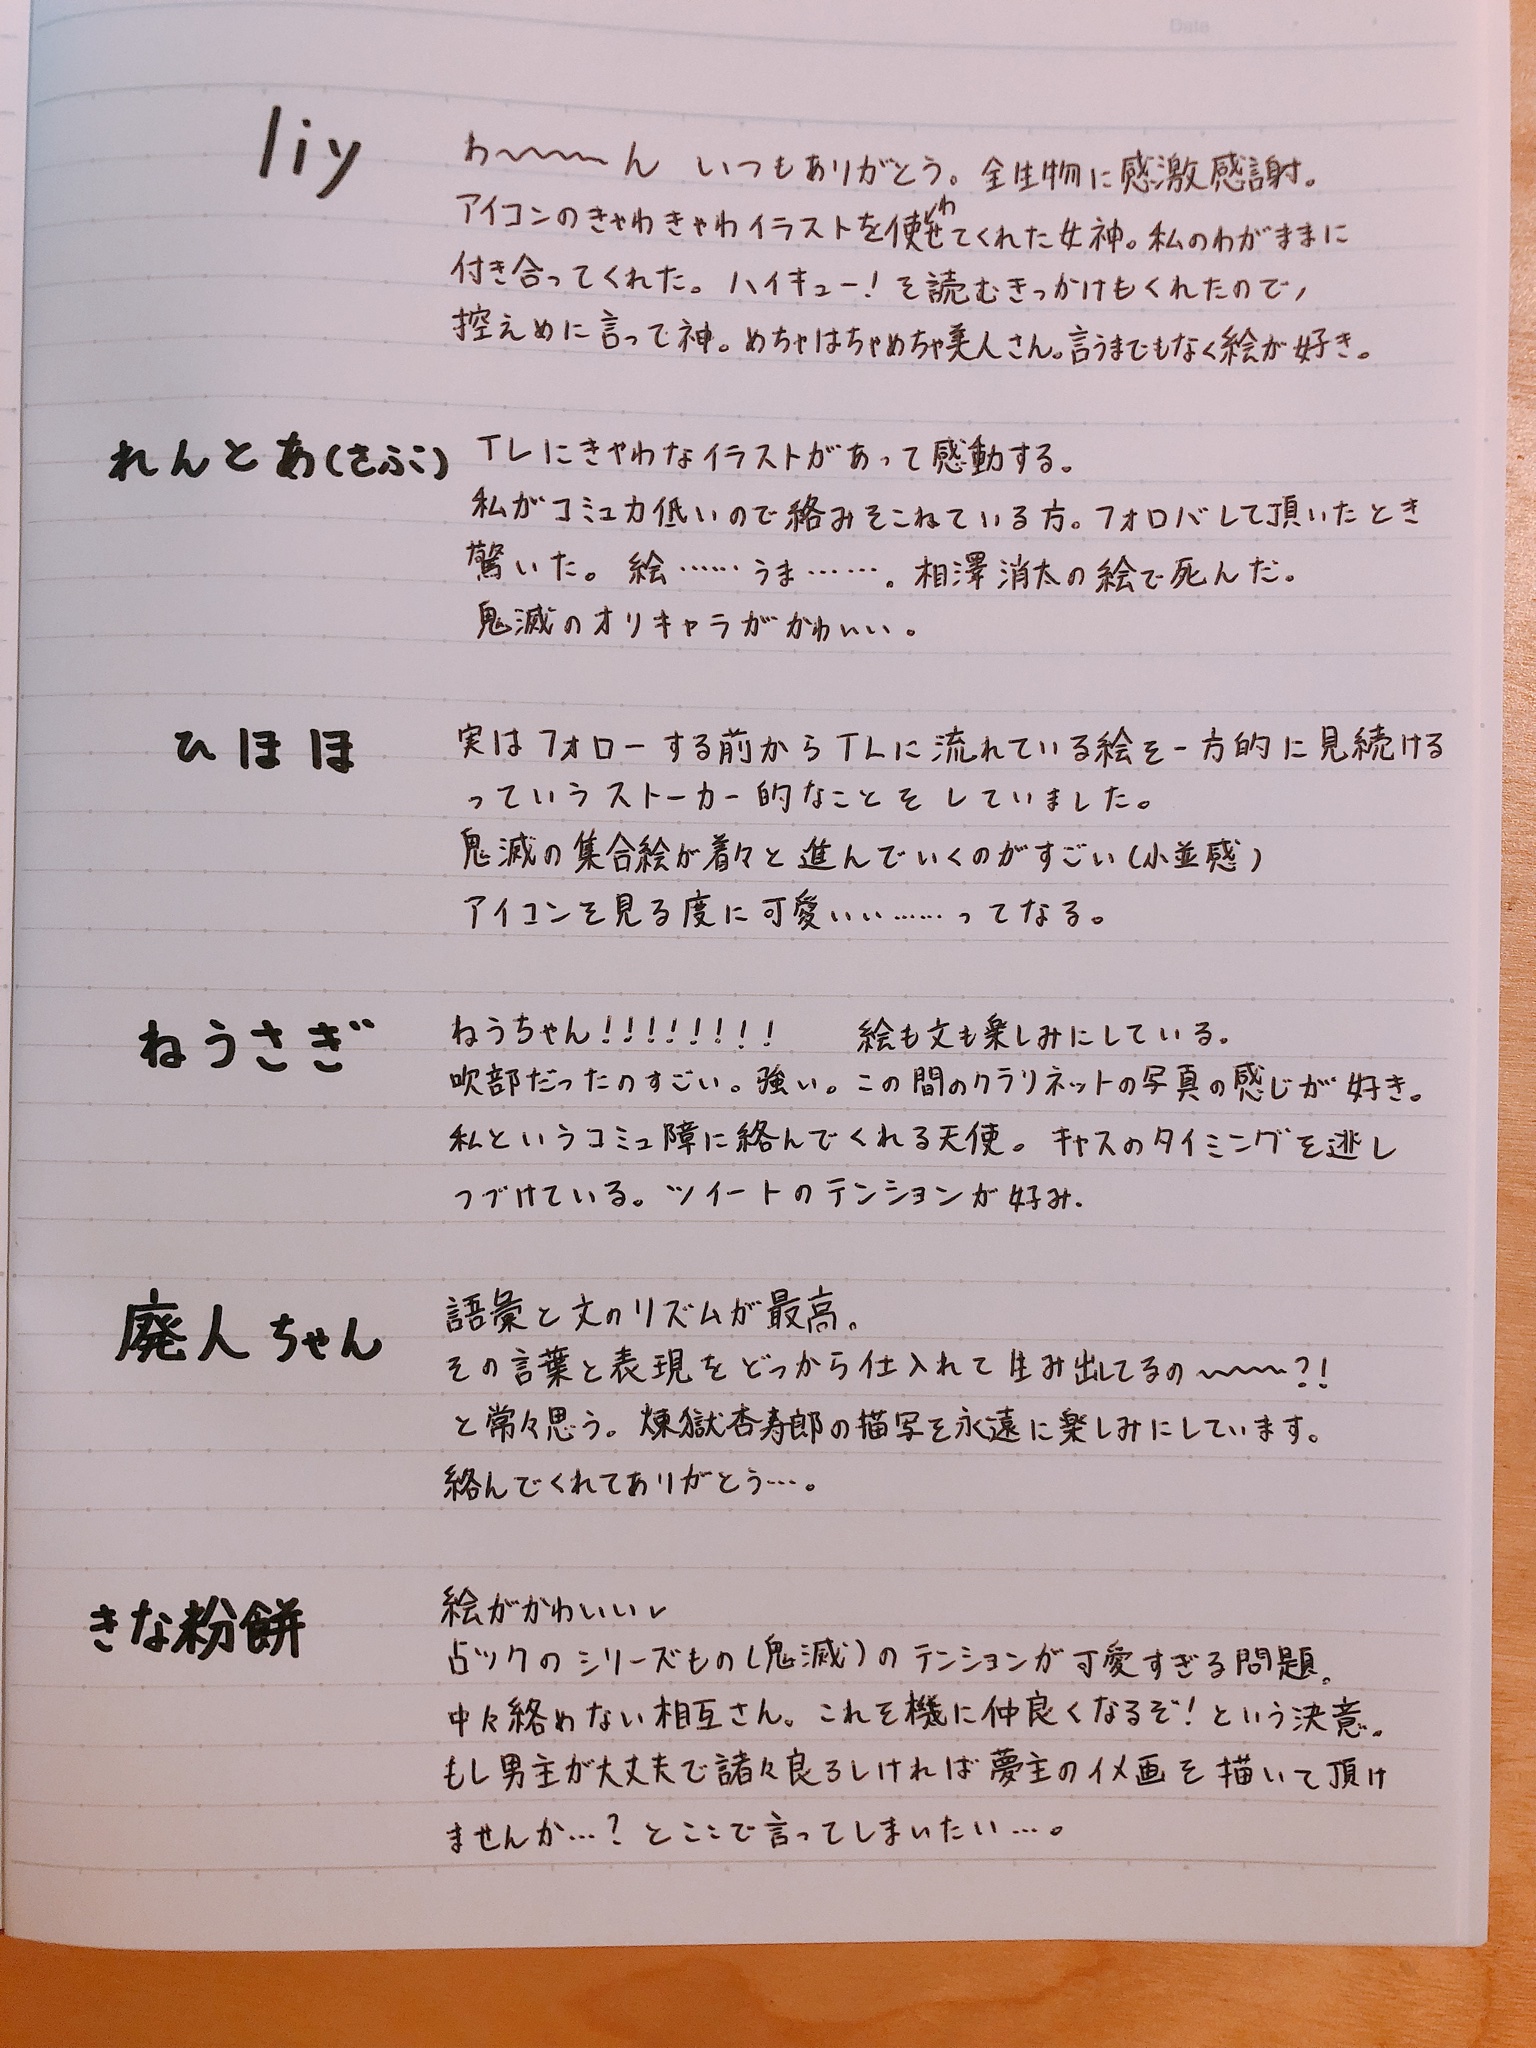 Date
liy
わ〜〜〜ん いつもありがとう。全生物に感激感謝。
アイコンのきゃわきゃわイラストを使わせてくれた女神。私のわがままに
付き合ってくれた。ハイキュー!を読むきっかけもくれたので、
控えめに言って神。めちゃはちゃめちゃ美人さん。言うまでもなく絵が好き。
れんとあ(さふこ)
TLにきゃわなイラストがあって感動する。
私がコミュ力低いので絡みそこねている方。フォロバして頂いたとき
驚いた。絵……うま……。相澤消太の絵で死んだ。
鬼滅のオリキャラがかわいい。
ひほほ
実はフォローする前からTLに流れている絵を一方的に見続ける
っていうストーカー的なことをしていました。
鬼滅の集合絵が着々と進んでいくのがすごい(小並感)
アイコンを見る度に可愛いい……ってなる。
ねうさぎ
ねうちゃん!!!!!!!! 絵も文も楽しみにしている。
吹部だったのすごい。強い。この間のクラリネットの写真の感じが好き。
私というコミュ障に絡んでくれる天使。キャスのタイミングを逃し
つづけている。ツイートのテンションが好み.
廃人ちゃん
語彙と文のリズムが最高。
その言葉と表現をどっから仕入れて生み出してるの〜〜〜?!
と常々思う。煉獄杏寿郎の描写を永遠に楽しみにしています。
絡んでくれてありがとう…。
きな粉餅
絵がかわいい
占ツクのシリーズもの(鬼滅)のテンションが可愛すぎる問題。
中々絡めない相互さん。これを機に仲良くなるぞ!という決意。
もし男主が大丈夫で諸々良ろしければ夢主のイメ画を描いて頂け
ませんか…?とここで言ってしまいたい…。